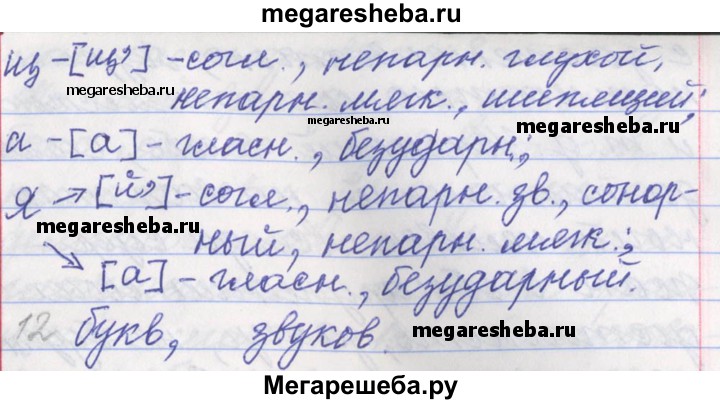 megaresheba.ru
щ – [щ'] – согл., непарн. глухой,
megaresheba.ru
непарн. мягк., шипящий;
megaresheba.ru
megaresheba.ru
а – [а] – гласн., безударн.;
я → [й'] – согл., непарн. зв., сонор-
megaresheba.ru
ный, непарн. мягк.;
↘ [а] – гласн., безударный.
12 букв, звуков.
megaresheba.ru
Мегарешеба.ру